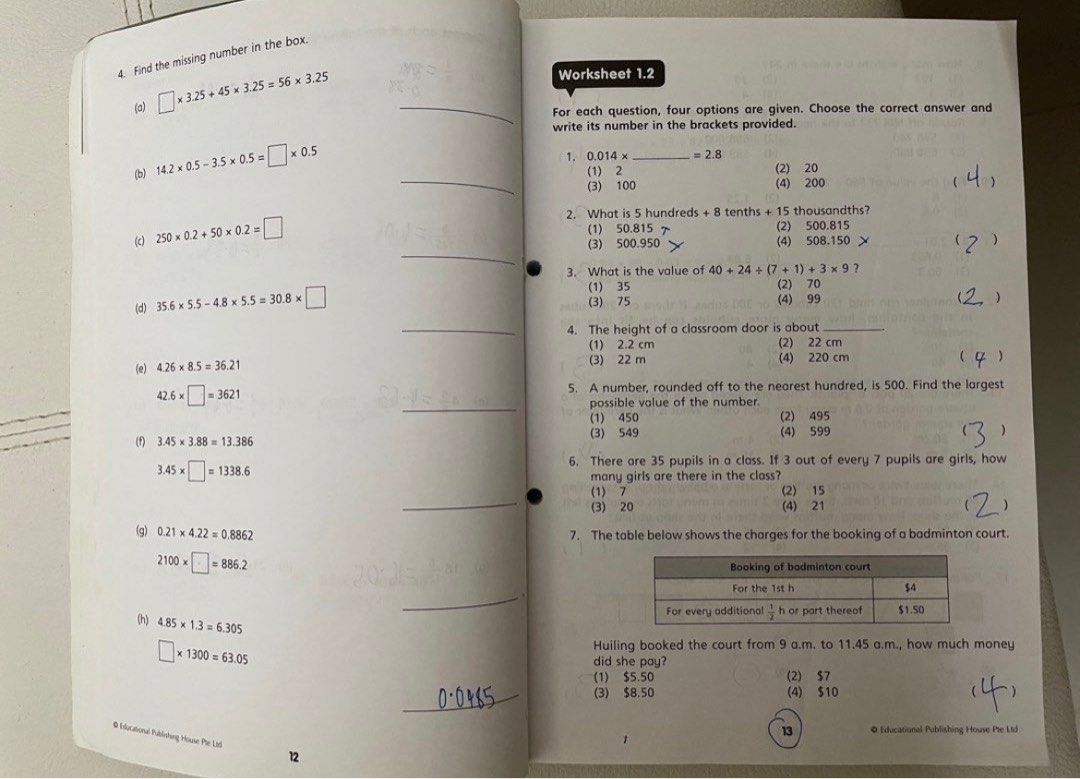 4. Find the missing number in the box.
(a) □ × 3.25 + 45 × 3.25 = 56 × 3.25
(b) 14.2 × 0.5 − 3.5 × 0.5 = □ × 0.5
(c) 250 × 0.2 + 50 × 0.2 = □
(d) 35.6 × 5.5 − 4.8 × 5.5 = 30.8 × □
(e) 4.26 × 8.5 = 36.21
42.6 × □ = 3621
(f) 3.45 × 3.88 = 13.386
3.45 × □ = 1338.6
(g) 0.21 × 4.22 = 0.8862
2100 × □ = 886.2
(h) 4.85 × 1.3 = 6.305
□ × 1300 = 63.05
0.0485
© Educational Publishing House Pte Ltd
12
Worksheet 1.2
For each question, four options are given. Choose the correct answer and
write its number in the brackets provided.
1. 0.014 × ________ = 2.8
(1) 2 (2) 20
(3) 100 (4) 200 ( 4 )
2. What is 5 hundreds + 8 tenths + 15 thousandths?
(1) 50.815 (2) 500.815
(3) 500.950 × (4) 508.150 × ( 2 )
3. What is the value of 40 + 24 ÷ (7 + 1) + 3 × 9 ?
(1) 35 (2) 70
(3) 75 (4) 99 ( 2 )
4. The height of a classroom door is about ________.
(1) 2.2 cm (2) 22 cm
(3) 22 m (4) 220 cm ( 4 )
5. A number, rounded off to the nearest hundred, is 500. Find the largest
possible value of the number.
(1) 450 (2) 495
(3) 549 (4) 599 ( 3 )
6. There are 35 pupils in a class. If 3 out of every 7 pupils are girls, how
many girls are there in the class?
(1) 7 (2) 15
(3) 20 (4) 21 ( 2 )
7. The table below shows the charges for the booking of a badminton court.
Booking of badminton court
For the 1st h $4
For every additional 1/2 h or part thereof $1.50
Huiling booked the court from 9 a.m. to 11.45 a.m., how much money
did she pay?
(1) $5.50 (2) $7
(3) $8.50 (4) $10 ( 4 )
13
© Educational Publishing House Pte Ltd